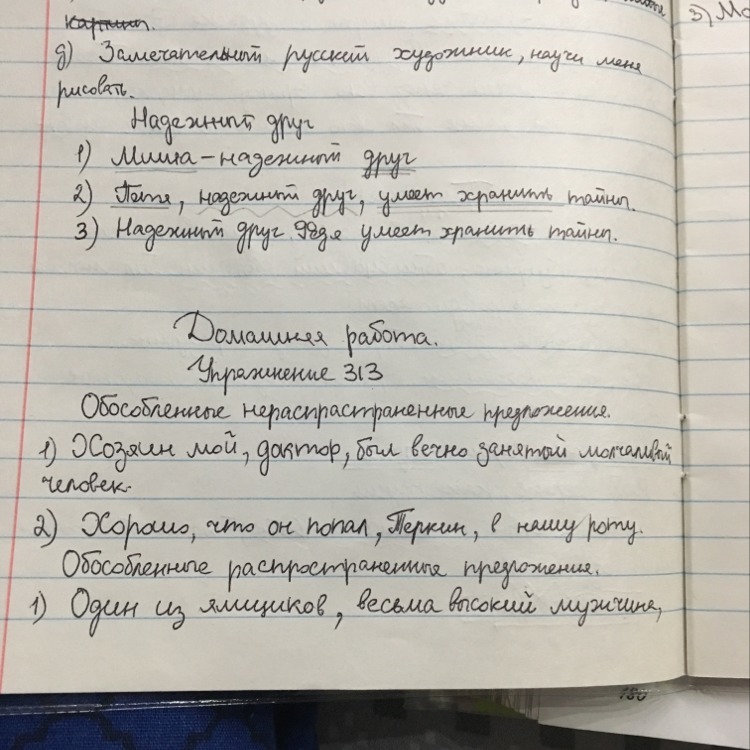 картины.
3) Мо
д) Замечательный русский художник, научи меня
рисовать.
Надежный друг
1) Миша – надежный друг
2) Петя, надежный друг, умеет хранить тайны.
3) Надежный друг Федя умеет хранить тайны.
Домашняя работа.
Упражнение 313
Обособленные нераспрастраненные предложения.
1) Хозяин мой, доктор, был вечно занятый молчаливый
человек.
2) Хорошо, что он попал, Теркин, в нашу роту.
Обособленные распространенные предложения.
1) Один из ямщиков, весьма высокий мужчина,
180